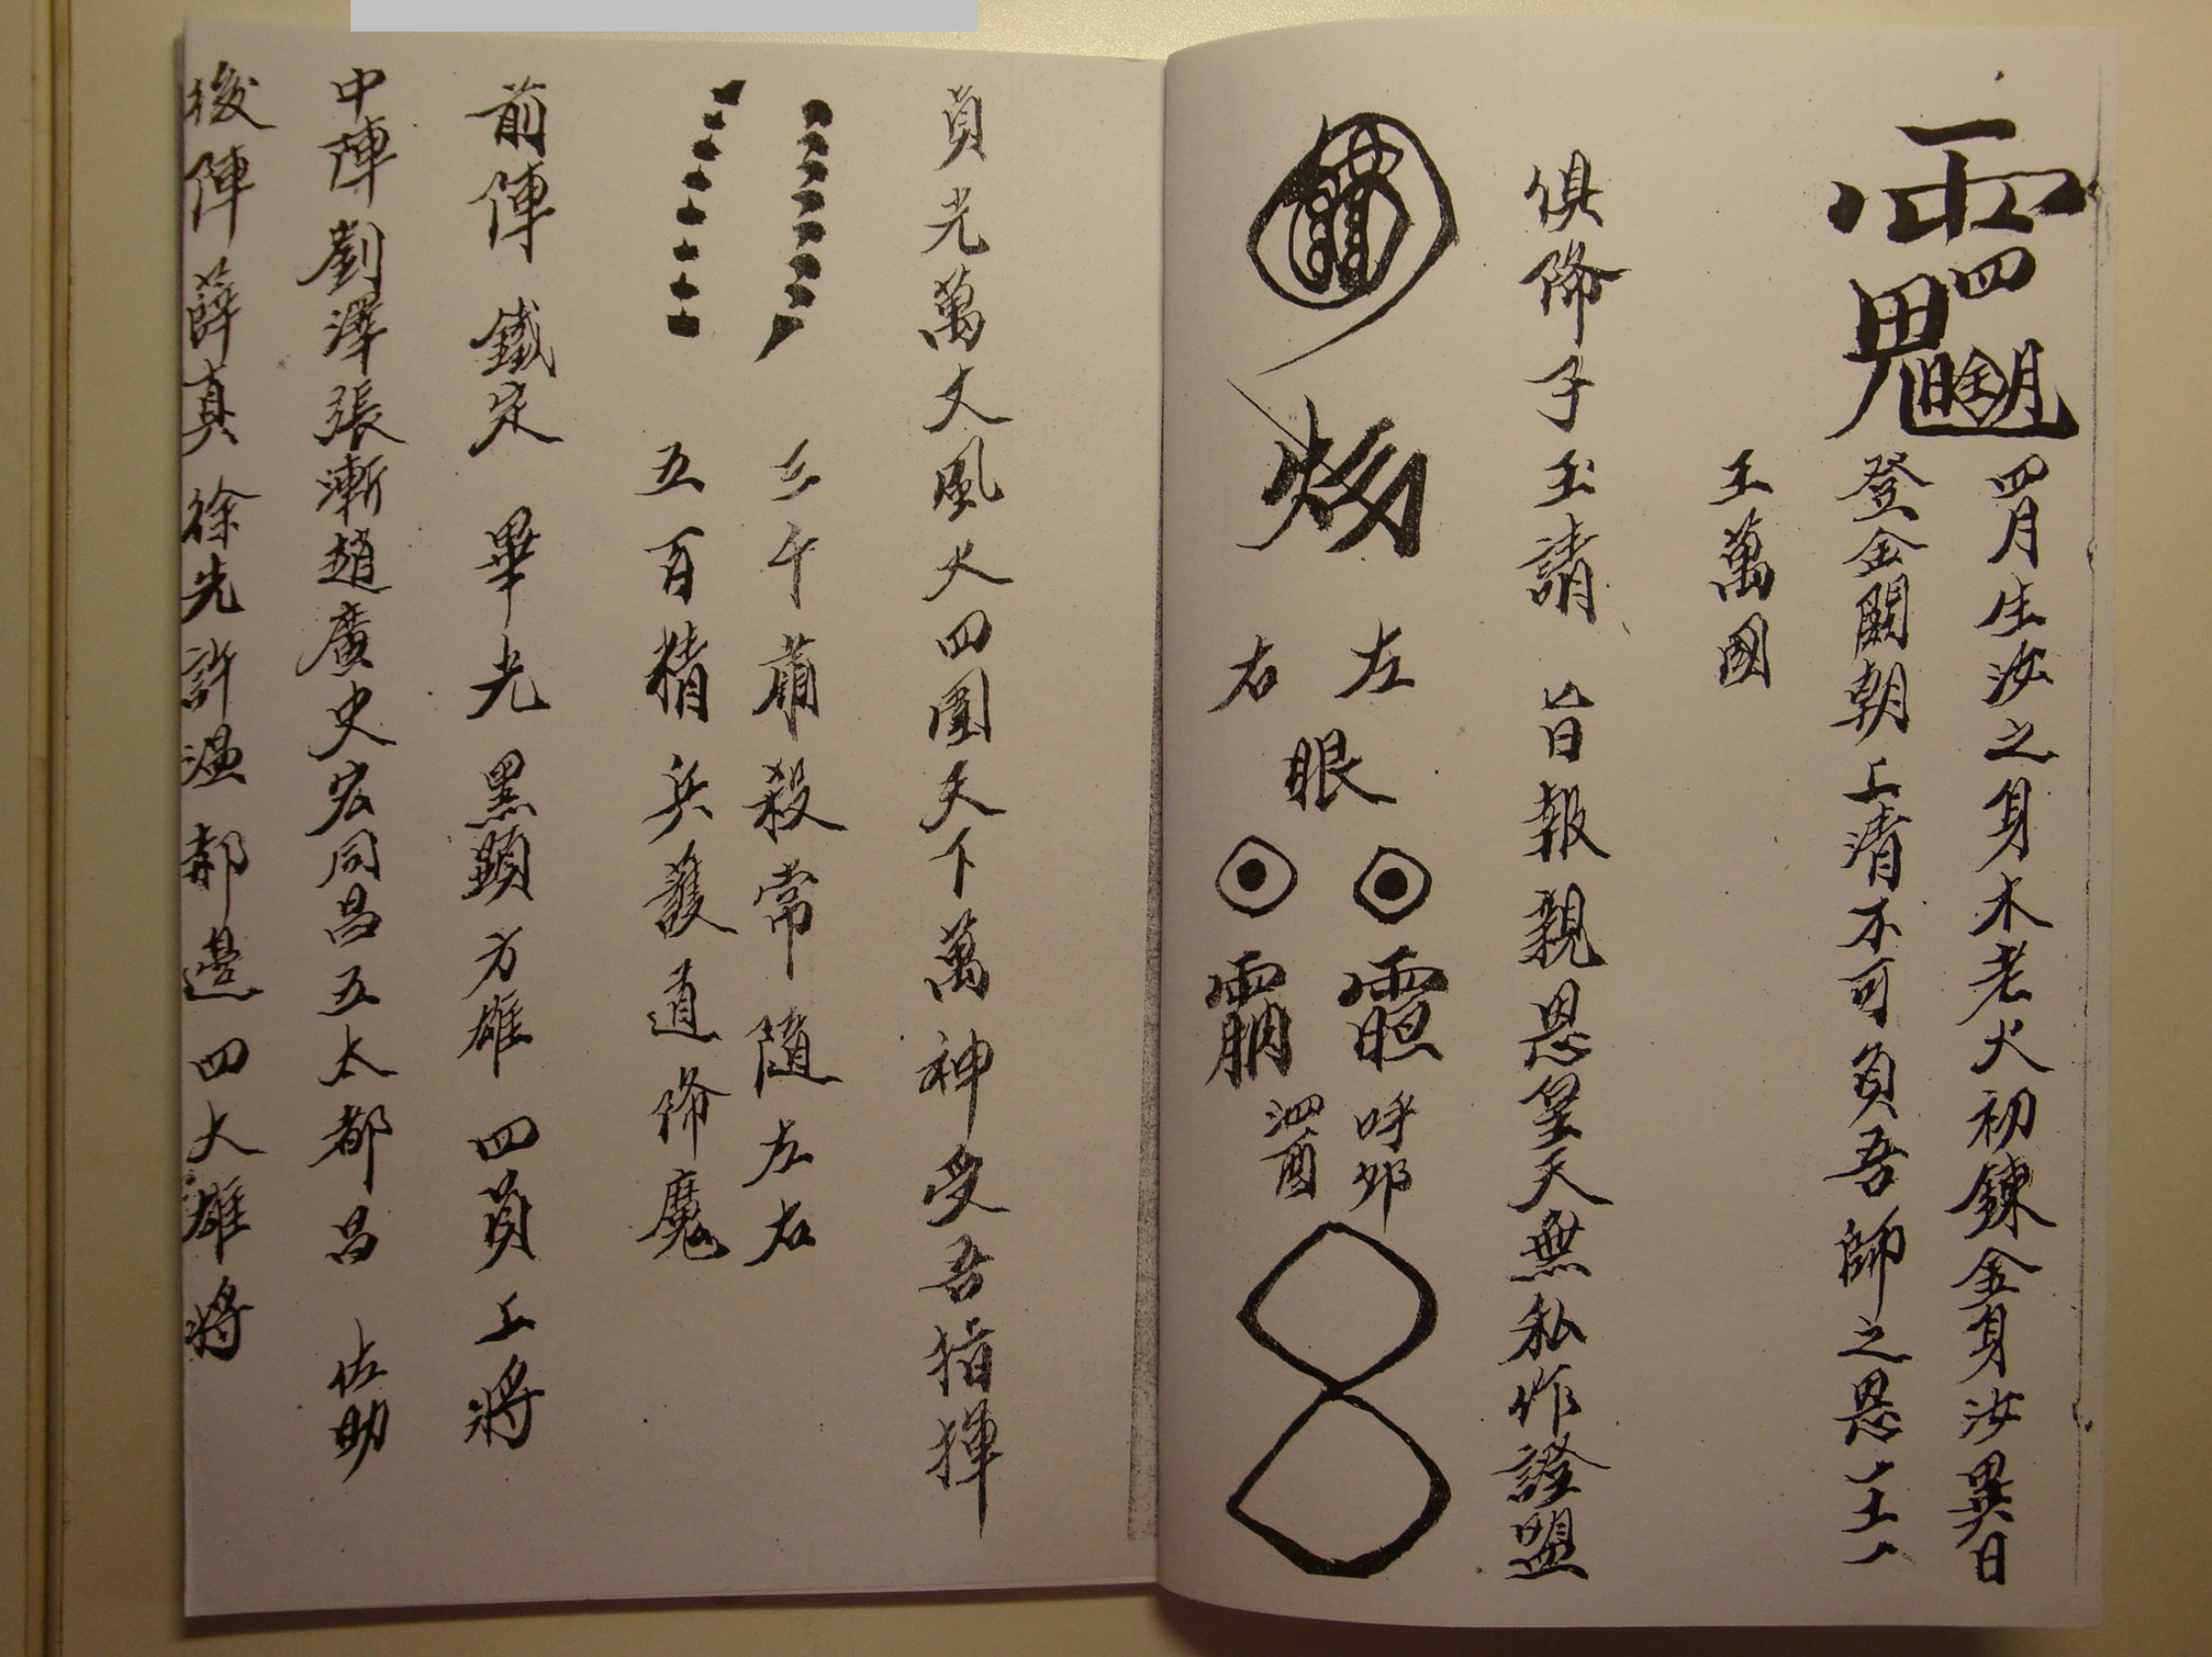 四月生汝之身木老火初鍊金身汝異日
登金闕朝上清不可負吾師之恩一王一
王萬國
俱俻子玉請 旨日報親恩皇天無私作證盟
左 眼 呼卯
右 泗酉
貞光萬丈風火四圍天下萬神受吾指揮
三千肅殺常隨左右
五百精兵護道俻魔
前陣 鐵定 畢光 黑顕 方雄 四員上將
中陣 劉澤張漸趙廣史宏同昌五太都昌 佐助
後陣 薛真 徐先 許温 郝邊 四大雄將